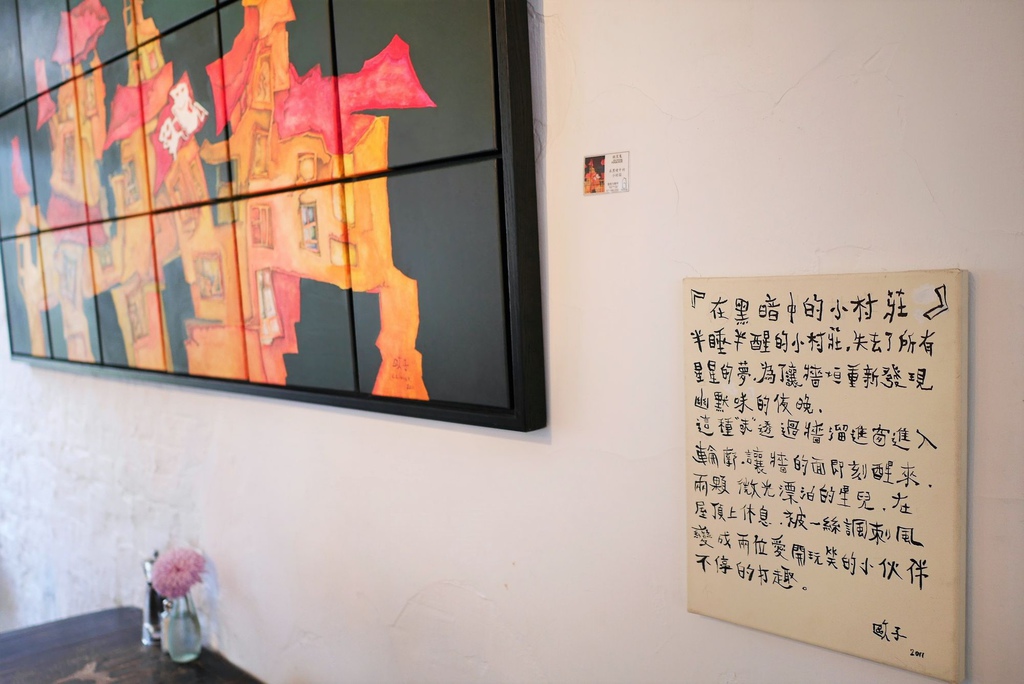 『在黑暗中的小村莊』
半睡半醒的小村莊，失去了所有
星星的夢，為了讓牆垣重新發現
幽默味的夜晚．
這種"求"透過牆溜進窗進入
輪廓，讓牆的面即刻醒來．
兩顆微光漂泊的星兒，在
屋頂上休息，被一絲諷刺風
變成兩位愛開玩笑的小伙伴
不停的打趣。
歐子
2011
歐子